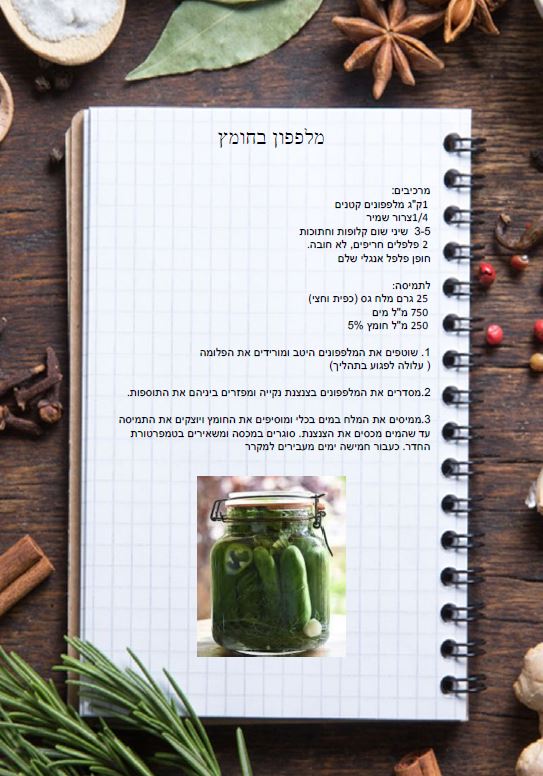 מלפפון בחומץ
מרכיבים:
1ק"ג מלפפונים קטנים
1/4צרור שמיר
3-5 שיני שום קלופות וחתוכות
2 פלפלים חריפים, לא חובה.
חופן פלפל אנגלי שלם
לתמיסה:
25 גרם מלח גס (כפית וחצי)
750 מ"ל מים
250 מ"ל חומץ 5%
1. שוטפים את המלפפונים היטב ומורידים את הפלומה
( עלולה לפגוע בתהליך)
2.מסדרים את המלפפונים בצנצנת נקייה ומפזרים ביניהם את התוספות.
3.ממיסים את המלח במים בכלי ומוסיפים את החומץ ויוצקים את התמיסה
עד שהמים מכסים את הצנצנת. סוגרים במכסה ומשאירים בטמפרטורת
החדר. כעבור חמישה ימים מעבירים למקרר